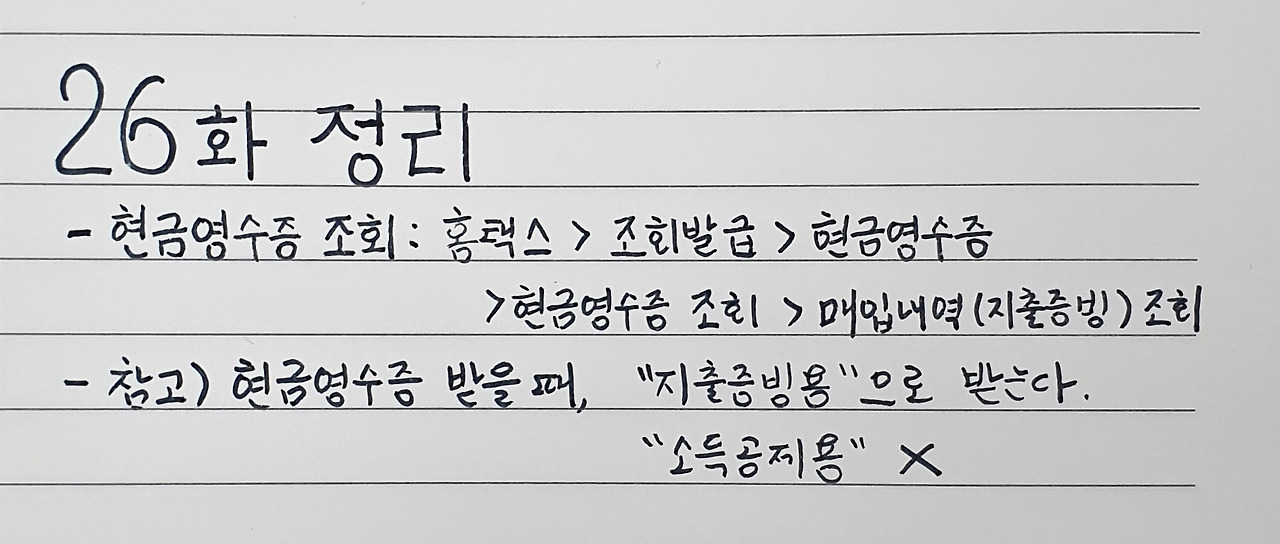 26화 정리
- 현금영수증 조회: 홈택스 > 조회발급 > 현금영수증
> 현금영수증 조회 > 매입내역(지출증빙) 조회
- 참고) 현금영수증 받을 때, "지출증빙용"으로 받는다.
"소득공제용" X